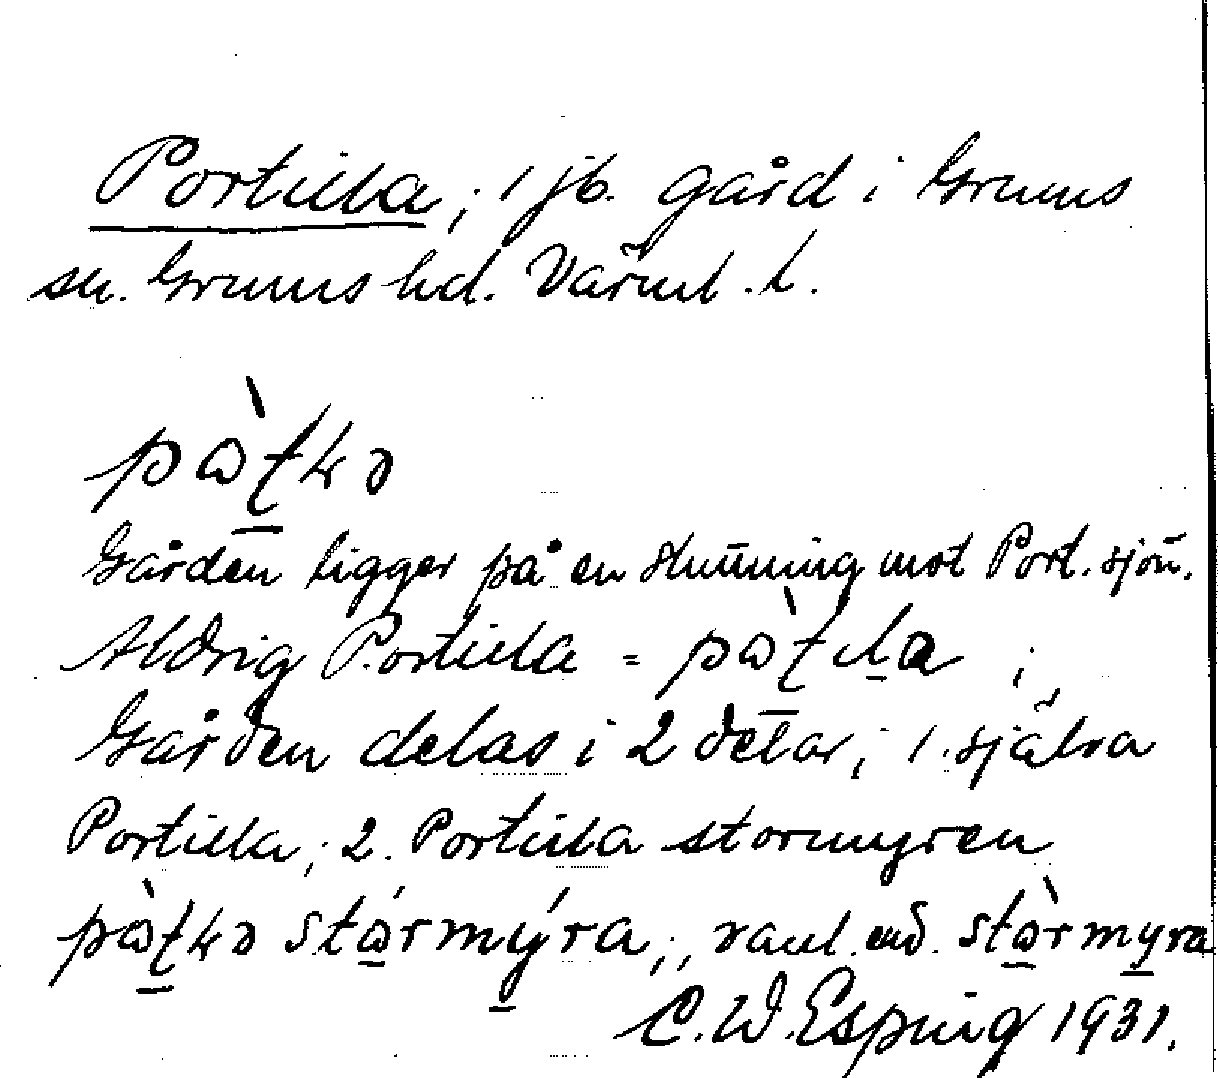 Portilla; 1 jb. gård i Grums
sn. Grums hd. Värml. l.
pò̱ʈkə
Gården ligger på en sluttning mot Port. sjön.
Aldrig Portilla = pò̱ʈila ;
Gården delas i 2 delar; 1. själva
Portilla; 2. Portilla stormyren
pò̱ʈkə stormýra;, vanl. end. stòrmyra
C. W. Esping 1931.